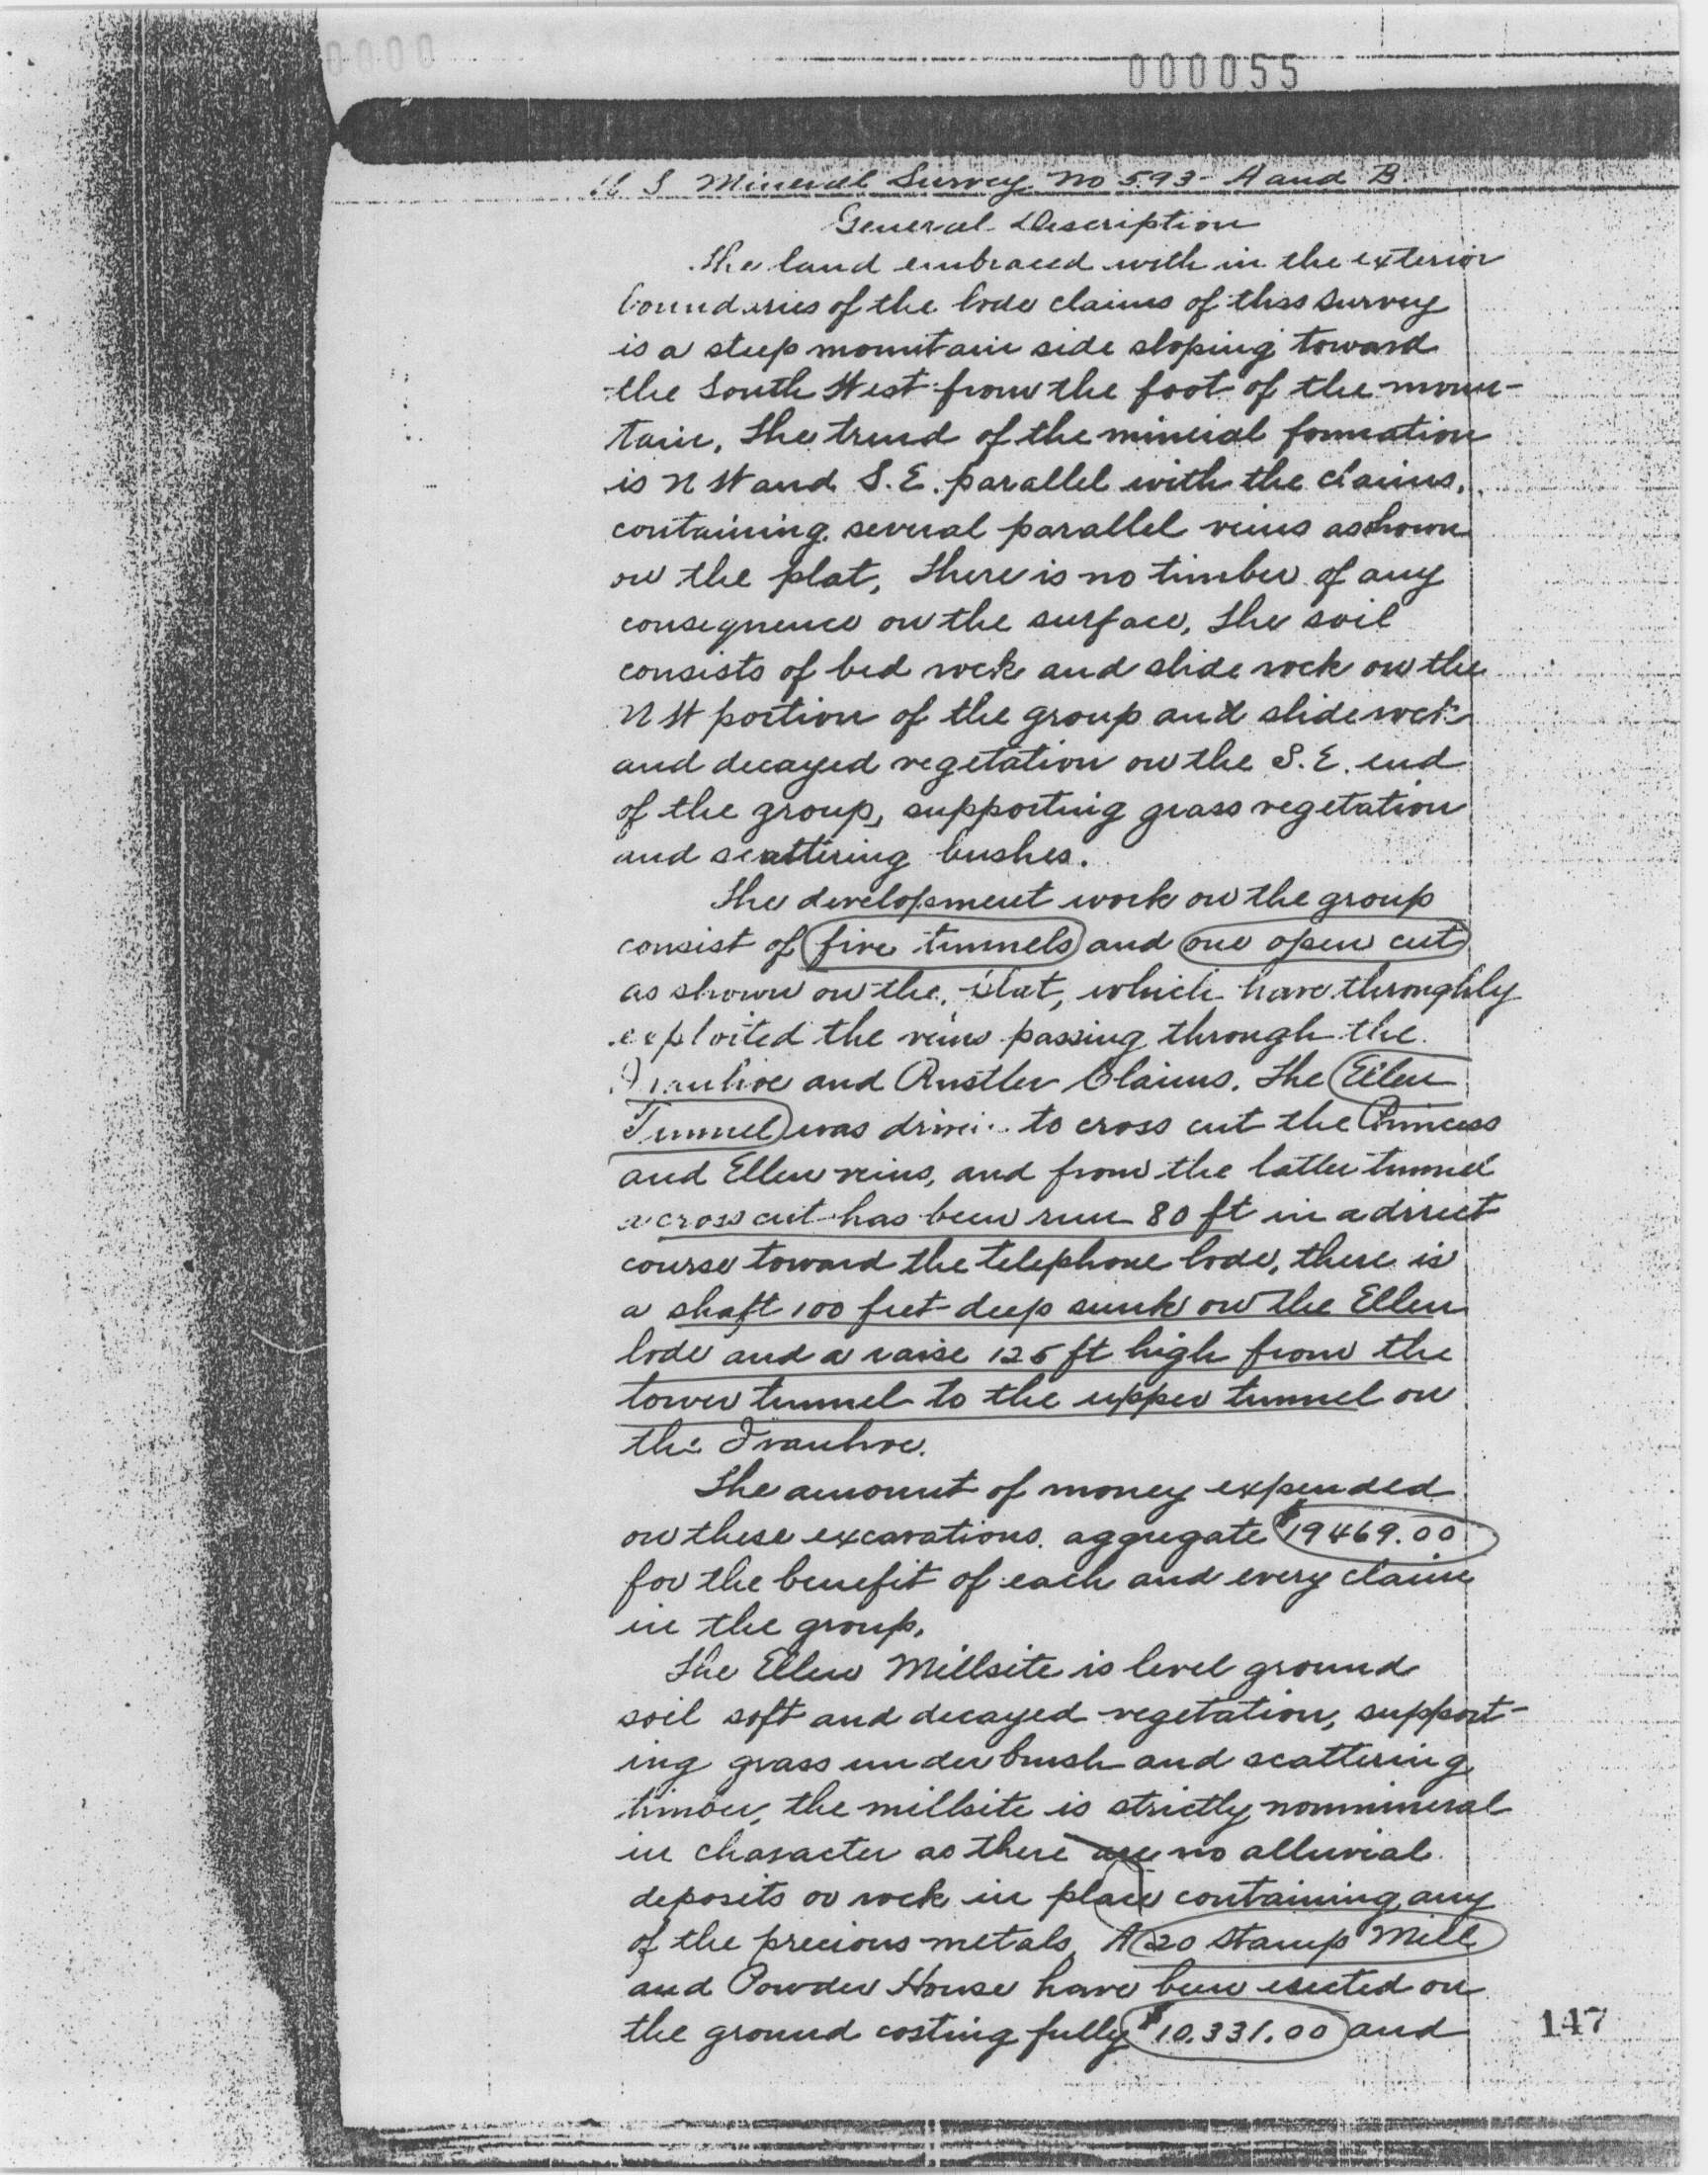 000055
U S Mineral Survey No 593 - A and B.
General Description
The land embraced with in the exterior
boundaries of the lode claims of this survey
is a steep mountain side sloping toward
the South West from the foot of the moun-
tain, The trend of the mineral formation
is N W and S.E. parallel with the claims,
containing several parallel veins as shown
on the plat, There is no timber of any
consequence on the surface, The soil
consists of bed rock and slide rock on the
N W portion of the group and slide rock
and decayed vegetation on the S.E. end
of the group, supporting grass vegetation
and scattering bushes.
The development work on the group
consist of five tunnels and one open cut
as shown on the plat, which have throughly
exploited the veins passing through the
Ivanhoe and Rustler Claims. The Ellen
Tunnel was driven to cross cut the Princess
and Ellen veins, and from the latter tunnel
a cross cut has been run 80 ft in a direct
course toward the telephone lode, there is
a shaft 100 feet deep sunk on the Ellen
lode and a raise 125 ft high from the
lower tunnel to the upper tunnel on
the Ivanhoe.
The amount of money expended
on these excavations aggregate $19469.00
for the benefit of each and every claim
in the group.
The Ellen Millsite is level ground
soil soft and decayed vegetation, support-
ing grass underbrush and scattering
timber, the millsite is strictly nonmineral
in character as there are no alluvial
deposits or rock in place containing any
of the precious metals, A 20 Stamp Mill
and Powder House have been erected on
the ground costing fully $10.331.00 and
147